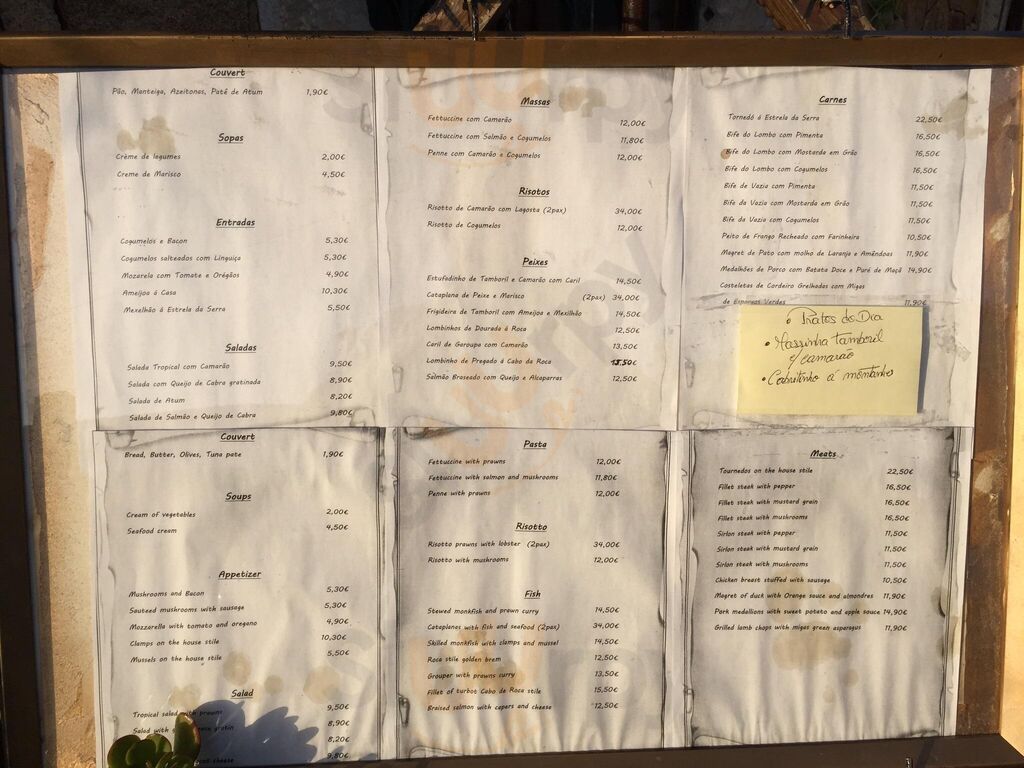 Couvert
Pão, Manteiga, Azeitonas, Patê de Atum 1,90€
Sopas
Crème de legumes 2,00€
Creme de Marisco 4,50€
Entradas
Cogumelos e Bacon 5,30€
Cogumelos salteados com Linguiça 5,30€
Mozarela com Tomate e Orégãos 4,90€
Ameijoa á Casa 10,30€
Mexelhão á Estrela da Serra 5,50€
Saladas
Salada Tropical com Camarão 9,50€
Salada com Queijo de Cabra gratinada 8,90€
Salada de Atum 8,20€
Salada de Salmão e Queijo de Cabra 9,80€
Massas
Fettuccine com Camarão 12,00€
Fettuccine com Salmão e Cogumelos 11,80€
Penne com Camarão e Cogumelos 12,00€
Risotos
Risotto de Camarão com Lagosta (2pax) 34,00€
Risotto de Cogumelos 12,00€
Peixes
Estufadinho de Tamboril e Camarão com Caril 14,50€
Cataplana de Peixe e Marisco (2pax) 34,00€
Frigideira de Tamboril com Ameijoa e Mexilhão 14,50€
Lombinhos de Dourada á Roca 12,50€
Caril de Garoupa com Camarão 13,50€
Lombinho de Pregado á Cabo da Roca
Salmão Braseado com Queijo e Alcaparras 12,50€
Carnes
Tornedó á Estrela da Serra 22,50€
Bife do Lombo com Pimenta 16,50€
Bife do Lombo com Mostarda em Grão 16,50€
Bife do Lombo com Cogumelos 16,50€
Bife de Vazia com Pimenta 11,50€
Bife da Vazia com Mostarda em Grão 11,50€
Bife da Vazia com Cogumelos 11,50€
Peito de Frango Recheado com Farinheira 10,50€
Magret de Pato com molho de Laranja e Amêndoas 11,90€
Medalhões de Porco com Batata Doce e Puré de Maçã 14,90€
Costeletas de Cordeiro Grelhadas com Migas
de Espargos Verdes 11,90€
• Pratos do Dia
• Massinha tamboril
c/ camarão
• Cabritinho á montanha
Couvert
Bread, Butter, Olives, Tuna pate 1,90€
Soups
Cream of vegetables 2,00€
Seafood cream 4,50€
Appetizer
Mushrooms and Bacon 5,30€
Sauteed mushrooms with sausage 5,30€
Mozzarella with tomato and oregano 4,90€
Clamps on the house stile 10,30€
Mussels on the house stile 5,50€
Salad
Tropical salad with prawns 9,50€
Salad with gratin 8,90€
8,20€
cheese 9,80€
Pasta
Fettuccine with prawns 12,00€
Fettuccine with salmon and mushrooms 11,80€
Penne with prawns 12,00€
Risotto
Risotto prawns with lobster (2pax) 34,00€
Risotto with mushrooms 12,00€
Fish
Stewed monkfish and prawn curry 14,50€
Cataplanes with fish and seafood (2pax) 34,00€
Skilled monkfish with clamps and mussel 14,50€
Roca stile golden brem 12,50€
Grouper with prawns curry 13,50€
Fillet of turbot Cabo de Roca stile 15,50€
Braised salmon with capers and cheese 12,50€
Meats
Tournedos on the house stile 22,50€
Fillet steak with pepper 16,50€
Fillet steak with mustard grain 16,50€
Fillet steak with mushrooms 16,50€
Sirlon steak with pepper 11,50€
Sirlon steak with mustard grain 11,50€
Sirlon steak with mushrooms 11,50€
Chicken breast stuffed with sausage 10,50€
Magret of duck with Orange sauce and almondres 11,90€
Pork medallions with sweet potato and apple sauce 14,90€
Grilled lamb chops with migas green asparagus 11,90€